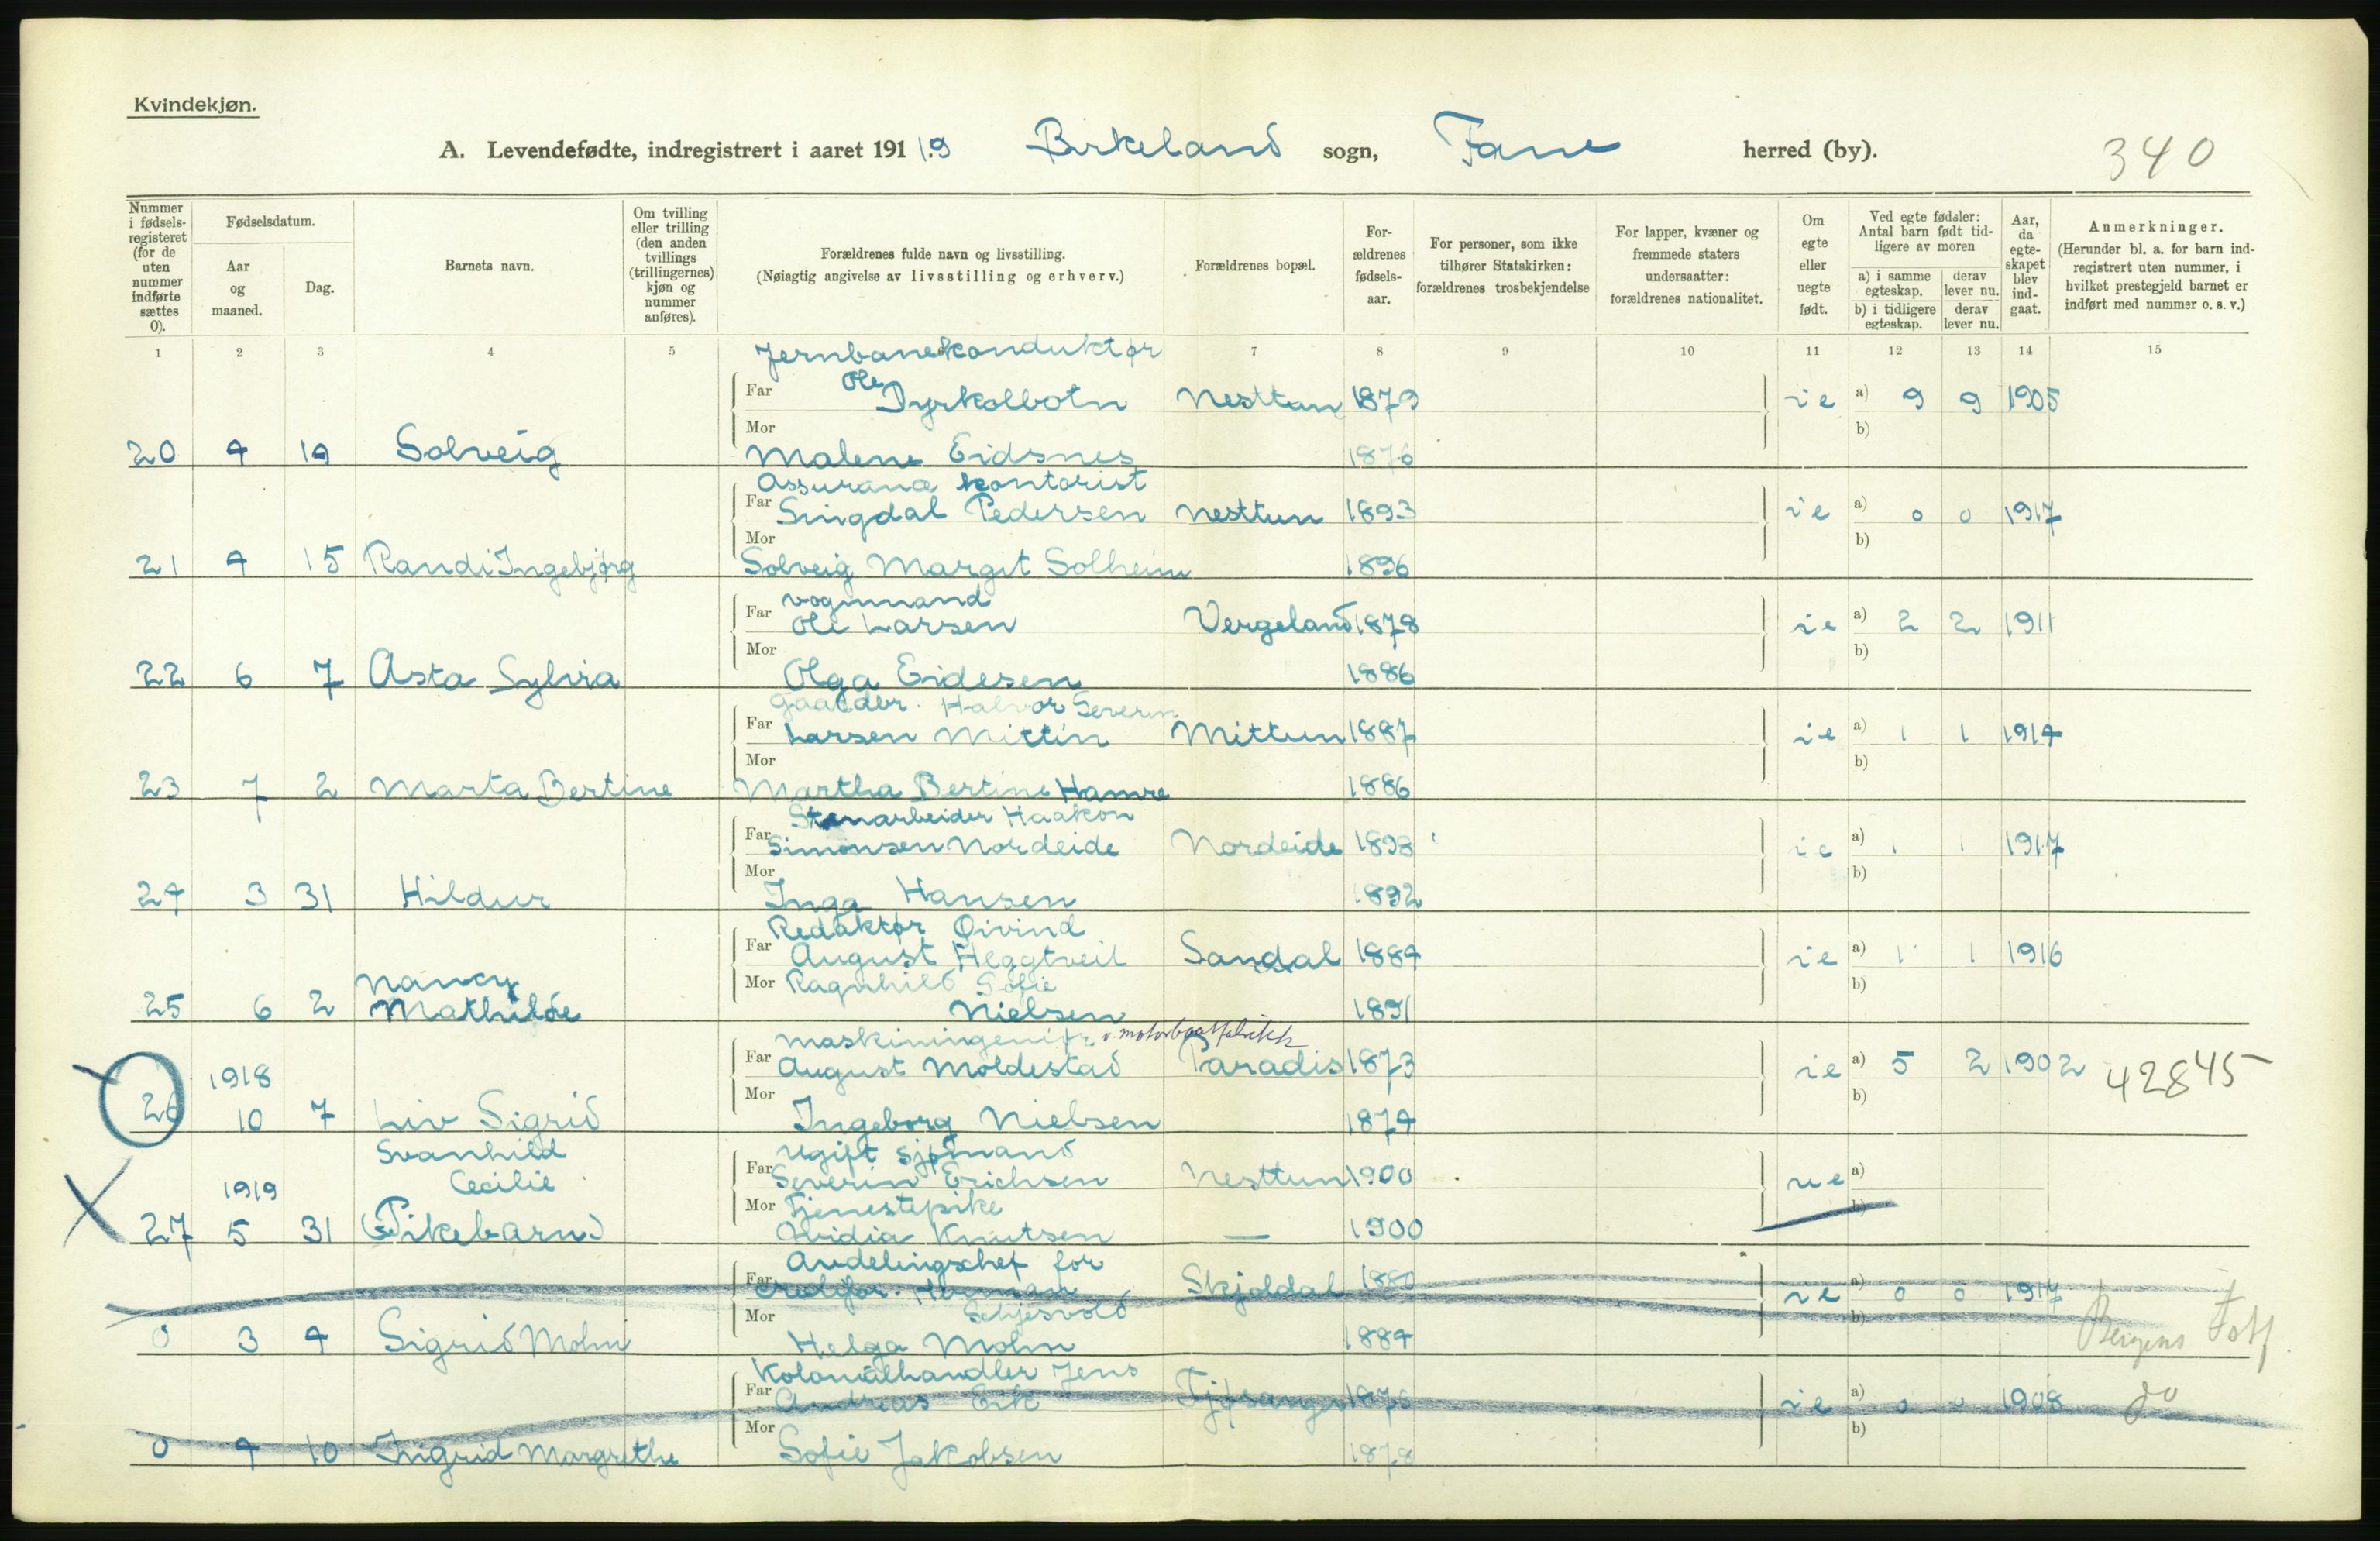 Kvindekjøn.
A. Levendefødte, indregistrert i aaret 191 19 Birkeland sogn, Fane herred (by). 340
Nummer i fødsels-registeret (for de uten nummer indførte sættes 0).
Fødselsdatum.
Aar og maaned.
Dag.
Barnets navn.
Om tvilling eller trilling (den anden tvillings (trillingernes) kjøn og nummer anføres).
Forældrenes fulde navn og livsstilling.
(Nøiagtig angivelse av livsstilling og erhverv.)
Forældrenes bopæl.
For-ældrenes fødsels-aar.
For personer, som ikke tilhører Statskirken: forældrenes trosbekjendelse
For lapper, kvæner og fremmede staters undersaatter: forældrenes nationalitet.
Om egte eller uegte født.
Ved egte fødsler: Antal barn født tid-ligere av moren
a) i samme egteskap. derav lever nu.
b) i tidligere egteskap. derav lever nu.
Aar, da egte-skapet blev ind-gaat.
Anmerkninger.
(Herunder bl. a. for barn ind-registrert uten nummer, i hvilket prestegjeld barnet er indført med nummer o. s. v.)
1 2 3 4 5 7 8 9 10 11 12 13 14 15
Jernbanekonduktør
Far Ole Dyrkolbotn Nesttun 1879 ie a) 9 9 1905
Mor b)
20 4 19 Solveig Malene Eidsnes 1876
Assurance kontorist
Far Singdal Pedersen Nesttun 1893 ie a) 0 0 1917
Mor b)
21 4 15 Randi Ingebjørg Solveig Margit Solheim 1896
vognmand
Far Ole Larsen Vergeland 1878 ie a) 2 2 1911
Mor b)
22 6 7 Asta Sylvia Olga Eidesen 1886
Halvor Severin
Far Larsen Mittun Mittun 1887 ie a) 1 1 1914
Mor b)
23 7 2 Marta Bertine Martha Bertine Hamre 1886
Stenarbeider Haakon
Far Simonsen Nordeide Nordeide 1898 ie a) 1 1 1917
Mor b)
24 3 31 Hildur Inga Hansen 1892
Redaktør Øivind
Far August Heggtveit Sandal 1884 ie a) 1 1 1916
Nancy Mor Ragnhild Sofie b)
25 6 2 Mathilde Nielsen 1891
maskiningeniør v. motorbaatfabrikk
1918 Far August Moldestad Paradis 1873 ie a) 5 2 1902 42845
Mor b)
26 10 7 Liv Sigrid Ingeborg Nielsen 1874
Svanhild Ugift sjømand
Cecilie Far Severin Erichsen Nesttun 1900 ue a)
1919 Mor Tjenestepike b)
27 5 31 (Pikebarn) Ovidia Knutsen — 1900
Avdelingschef for
Far Herman Skjoldal 1880 ie a) 0 0 1917
Mor b) Bergens
0 3 4 Sigrid Mohn Helga Mohn 1884
Kolonialhandler Jens
Far Andreas Eik 1876 ie a) 0 0 1908 do
Mor b)
0 4 10 Ingrid Margrethe Sofie Jakobsen 1878